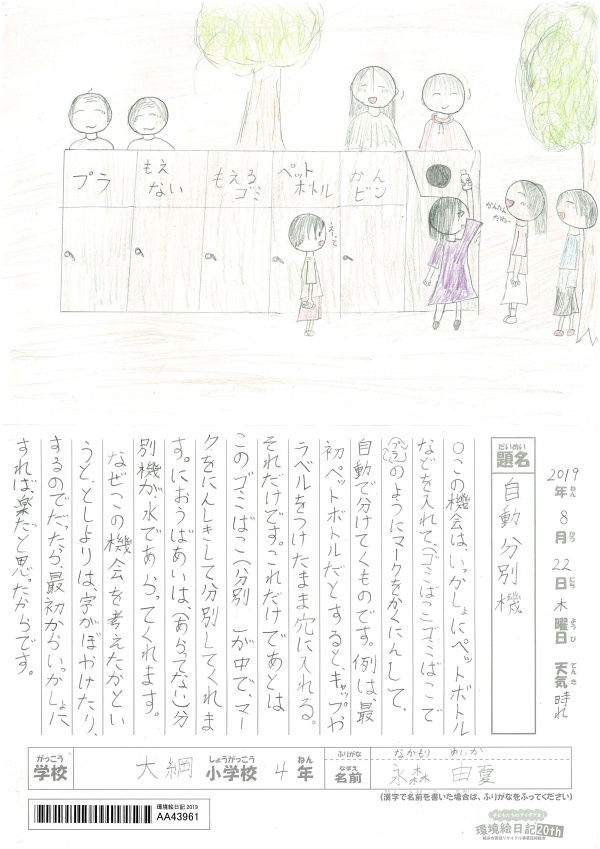 プラ
もえ
ない
もえる
ゴミ
ペット
ボトル
かん
ビン
えっと
かんたん
だね〜
2019年ねん 8月がつ 22日にち 木曜日ようび 天気てんき 晴れ
だいめい
題名
自動分別機
○この機会は、いっかしょにペットボトル
などを入れて、(ゴミばこ)ゴミばこで
プラのようにマークをかくにんして、
自動で分けてくものです。例は、最
初ペットボトルだとすると、キャップや
ラベルをつけたまま穴に入れる。
それだけです。これだけであとは
このゴミばこ(分別 )が中で、マー
クをにんしきして、分別してくれま
す。におうばあいは、(あらってない)分
別機が水であらってくれます。
なぜこの機会を考えたかとい
うと、としよりは、字がぼやけたり、
するのでだったら、最初からいっかしょに
すれば、楽だと思ったからです。
がっこう
学校
大綱
しょうがっこう
小学校
4
ねん
年
ふりがな
ながもり ゆいか
なまえ
名前
永森 由夏
(漢字で名前を書いた場合は、ふりがなをふってください)
環境絵日記 2019
AA43961
環境絵日記20th
横浜市資源リサイクル事業協同組合